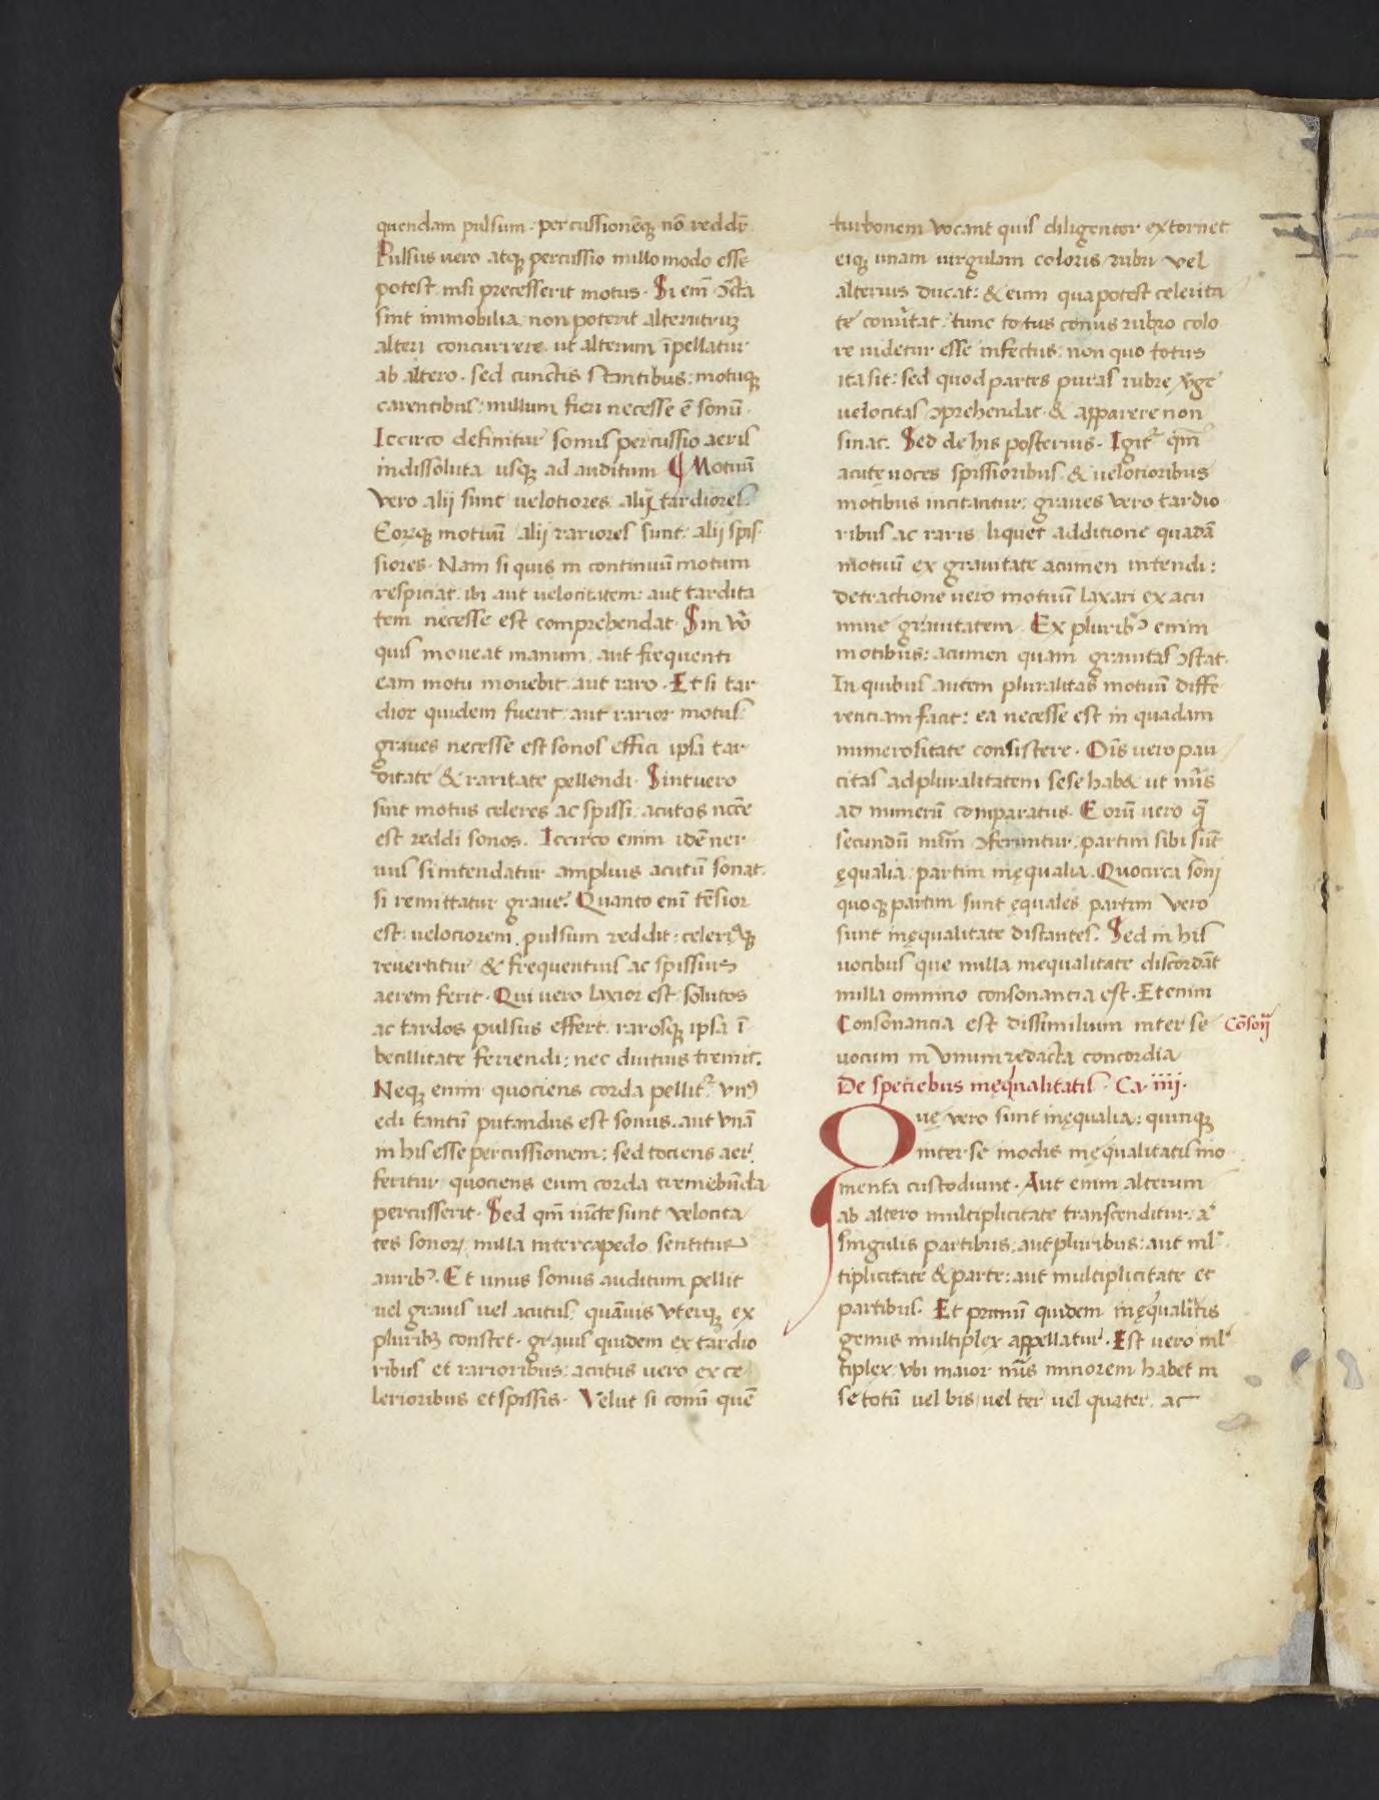 quendam pulsum · percussionēqꝫ nō reddr̄
Pulsus uero atqꝫ percussio nullo modo esse
potest nisi precesserit motus · Si em̄ ↄ̄cta
sint immobilia non poterit alterutruꝫ
alteri concurrere ut alterum īpellatur
ab altero · sed cunctis stantibus: motuqꝫ
carentibus: nullum fieri necesse ē sonū ·
Iccirco definitur sonus percussio aeris
indissoluta usqꝫ ad auditum ¶ Motuū
vero alij sunt uelotiores alij tardiores.
Eorꝫqꝫ motuū alij rariores sunt: alij spis
siores · Nam si quis in continuū motum
respiciat ibi aut uelocitatem: aut tardita
tem necesse est comprehendat · Sin vō
quis moueat manum aut frequenti
eam motu mouebit aut raro · Et si tar
dior quidem fuerit aut rarior motus
graues necesse est sonos effici ipsa tar
ditate & raritate pellendi · Sint uero
sint motus celeres ac spissi: acutos nc̄ce
est reddi sonos. Iccirco enim idē ner
uus si intendatur amplius acutū sonat.
si remittatur graue. Quanto enī tēsior
est: uelociorem pulsum reddit: celeriꝰqꝫ
reuertitur & frequentius ac spissius
aerem ferit · Qui uero laxior est solutos
ac tardos pulsus effert rarosqꝫ ipsa ī
becillitate feriendi: nec diutius tremit.
Neqꝫ enim quociens corda pellit᷑ vnꝰ
edi tantū putandus est sonus. aut vnā
in his esse percussionem: sed tociens aer
feritur quociens eum corda tremebūda
percusserit · Sed qm̄ iūcte sunt velocita
tes sonoꝝ nulla intercapedo sentitur
auribꝰ. Et unus sonus auditum pellit
uel grauis uel acutus: quāuis vterqꝫ ex
pluribꝫ constet · grauis quidem ex tardio
ribus et rarioribus: acutus uero ex ce
lerioribus et spissis · Velut si conū quē
turbonem vocant quis diligenter extornet
eiqꝫ unam uirgulam coloris rubri vel
alterius ducat: & eum qua potest celerita
te conūtat: tunc totus conus rubro colo
re uidetur esse infectus: non quo totus
ita sit: sed quod partes puras rubre v̄ge
uelocitas ↄprehendat · & apparere non
sinat. Sed de his posterius · Igit᷑ qm̄
acutę uoces spissioribus & uelotioribus
motibus incitantur: graues vero tardio
ribus ac raris liquet additione quadā
motuū ex grauitate acumen intendi:
detractione uero motuū laxari ex acu
mine grauitatem · Ex pluribꝰ enim
motibus: acumen quam grauitas ↄstat.
In quibus autem pluralitas motuū diffe
rentiam facit: ea necesse est in quadam
numerositate consistere · Oīs uero pau
citas ad pluralitatem sese habet ut nūs
ad numerū comparatus · Eorū uero q̄
secundū nūm ↄferuntur: partim sibi sūt
ęqualia: partim inęqualia. Quocirca soni
quoqꝫ partim sunt ęquales partim vero
sunt inęqualitate distantes. Sed in his
uocibus que nulla inequalitate discordāt
nulla omnino consonancia est · Etenim
Consonancia est dissimilium inter se
Cōsonꝫ
uocum in vnum redacta concordia
De speciebus inęqualitatis · Ca· iiij·
Quę vero sunt inęqualia: quinqꝫ
inter se modis inęqualitatis mo
menta custodiunt · Aut enim alterum
ab altero multiplicitate transcenditur: aᵗ
singulis partibus: aut pluribus: aut ml̄
tiplicitate & parte: aut multiplicitate et
partibus. Et primū quidem inęqualitatis
genus multiplex appellatur · Est uero ml̄
tiplex vbi maior nūs minorem habet in
se totū uel bis uel ter uel quater ac